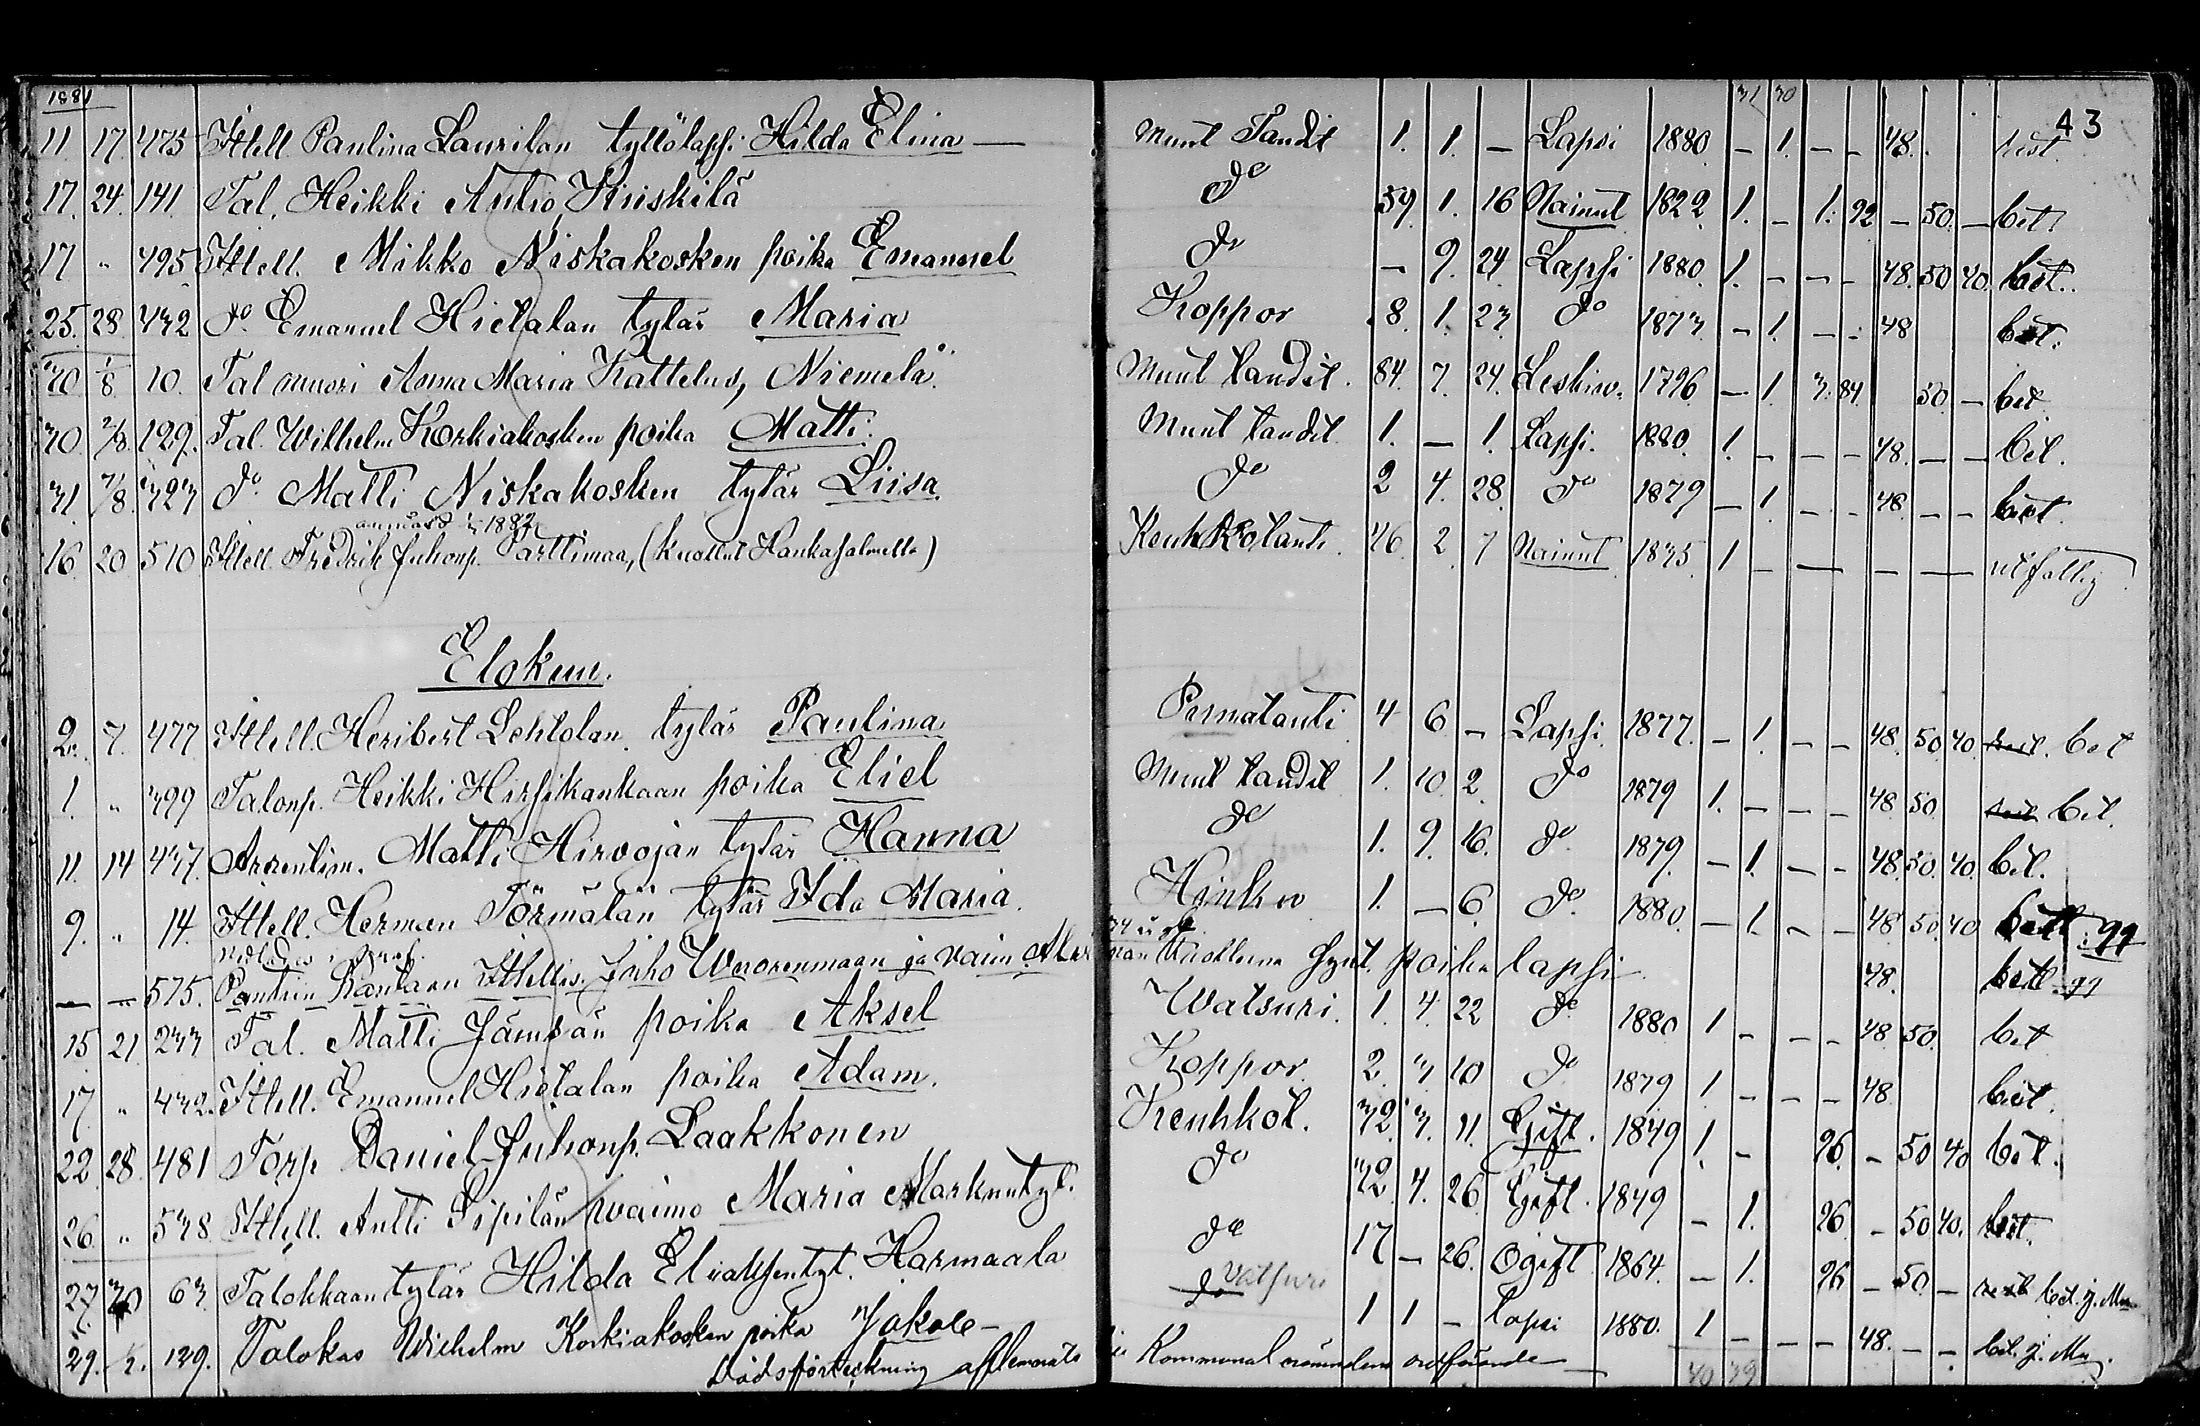 1881
43
31 30
11. 17. 475 Ittell. Paulina Laurilan tyttölapsi Hilda Elina — Muut Taudit 1. 1. — Lapsi 1880 — 1. — — 48.
17. 24. 141. Tal. Heikki Antio, Kiiskilä do 59 1. 16 Nainut 1822 1. — 1. 92 — 50. — bet
17 " 495 Ittell. Mikko Niskakosken poika Emanuel do — 9. 24 Lapsi 1880 1. — — — 48. 50 40. bet.
25. 28. 432 do Emanuel Hietalan tytär Maria Koppor 8. 1. 23 do 1873 — 1. — — 48 bet.
30 1/8 10. Tal muori Anna Maria Kattelus, Niemelä. Muut taudit. 84. 7. 24. Leskiv. 1796 — 1. 3. 84. 50 — bet
30. 2/8. 129. Tal. Wilhelm Korkiakosken poika Matti. Muut taudit 1. — 1. Lapsi. 1880. 1. — — — 48. — — bet.
31. 7/8 323 do Matti Niskakosken tytär Liisa. do 2 4. 28. do 1879 — 1. — — 48. — — bet.
1882
16. 20. 510 Ittell. Fredrik Juhonp. Parttimaa, (kuollut Hankasalmella) Keuhkotauti. 46. 2 7 Nainut 1835. 1 — — — — utfattig
Elokuu.
2. 7. 477 Ittell. Heribert Lehtolan tytär Paulina Punatauti 4 6 — Lapsi. 1877. — 1. — — 48. 50 40. bet
1. " 399 Talonp. Heikki Hirsikankaan poika Eliel Muut taudit 1. 10. 2. do 1879 1. — — — 48. 50 bet.
11. 14 437. Arrentim. Matti Hirvojan tytär Hanna do 1. 9. 16. do 1879. — 1. — — 48. 50. 40. bet.
9. " 14. Ittell. Herman Törmälän tytär Ida Maria. Hinku 1. — 6. do 1880. — 1 — — 48. 50. 40
— — 575. Rantaan Ittellis. Juho Wuorenmaan ja vaim kuolleena synt. poika lapsi 48.
15 21 233 Tal. Matti Jämsän poika Aksel Watsuri. 1. 4. 22 do 1880 1 — — — 48 50. bet
17 " 432. Ittell. Emanuel Hietalan poika Adam. Koppor. 2. 3 10 do 1879 1 — — — 48. bet.
22 28. 481 Torp Daniel Juhonp. Laakkonen Keuhkot. 32. 3. 11. Gift. 1849 1. — 96. — 50 40 bet.
26. " 538 Ittell. Antti Sipilän waimo Maria Markuntyt. do 32 4. 26. Gift. 1849 — 1. 96. — 50 40. bet.
27. 30 63. Talokkaan tytär Hilda Eliaksentyt. Harmaala do 17 — 26. Ogift 1864. — 1. 96 — 50. — bet. j. Mu
29. 1/2. 129. Talokas Wilhelm Korkiakosken poika Jakob — Vatsuri 1 1 — lapsi 1880. 1 — — — 48. — — bet. j. Mu.
Dödsförteckning aflemnats Kommunal nämndens ordförande
40 39